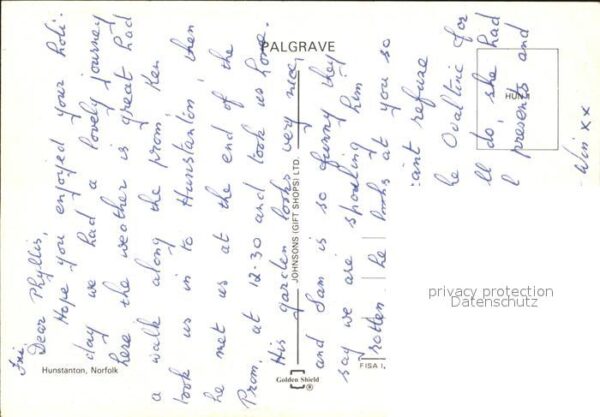 PALGRAVE
Fri.
Dear Phyllis,
Hope you enjoyed your holi.
day we had a lovely journey
here the weather is great had
a walk along the prom, Ken
took us in to Hunstanton, then
he met us at the end of the
Prom. at 12-30 and took us home.
His garden looks very nice,
and Sam is so funny they
say we are spoiling him
rotten he looks at you so
cant refuse
he Ovaltine for
ll do, she had
l presents and
Win xx
JOHNSONS (GIFT SHOPS) LTD.
HUN
Hunstanton, Norfolk
Golden Shield
®
FISA
privacy protection
Datenschutz